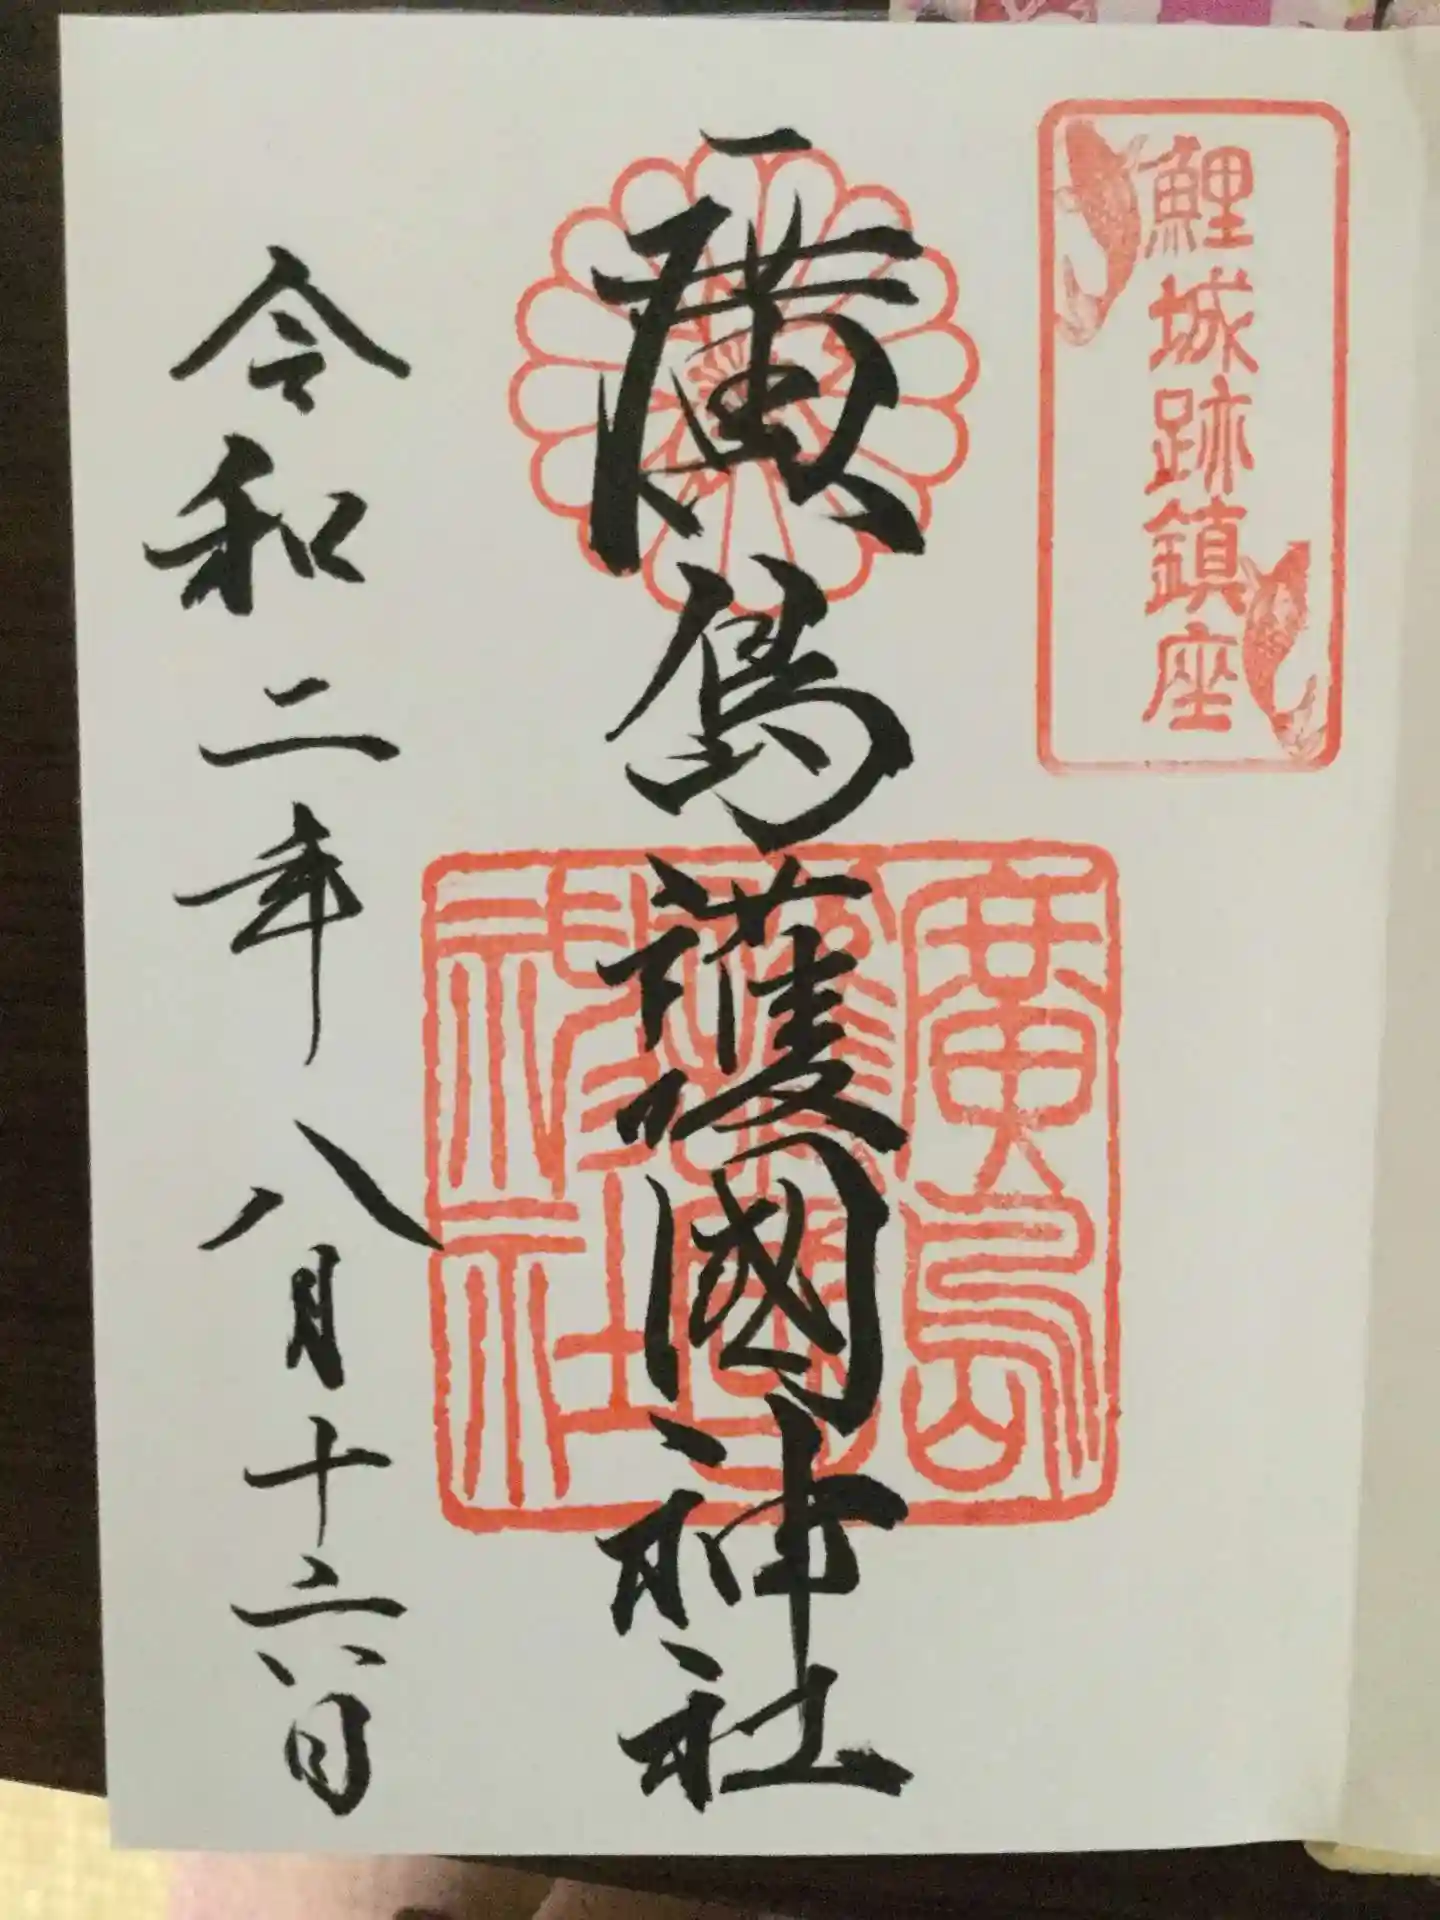 鯉城跡鎮座
廣島護國神社
廣島
護國
神社
令和二年八月十六日